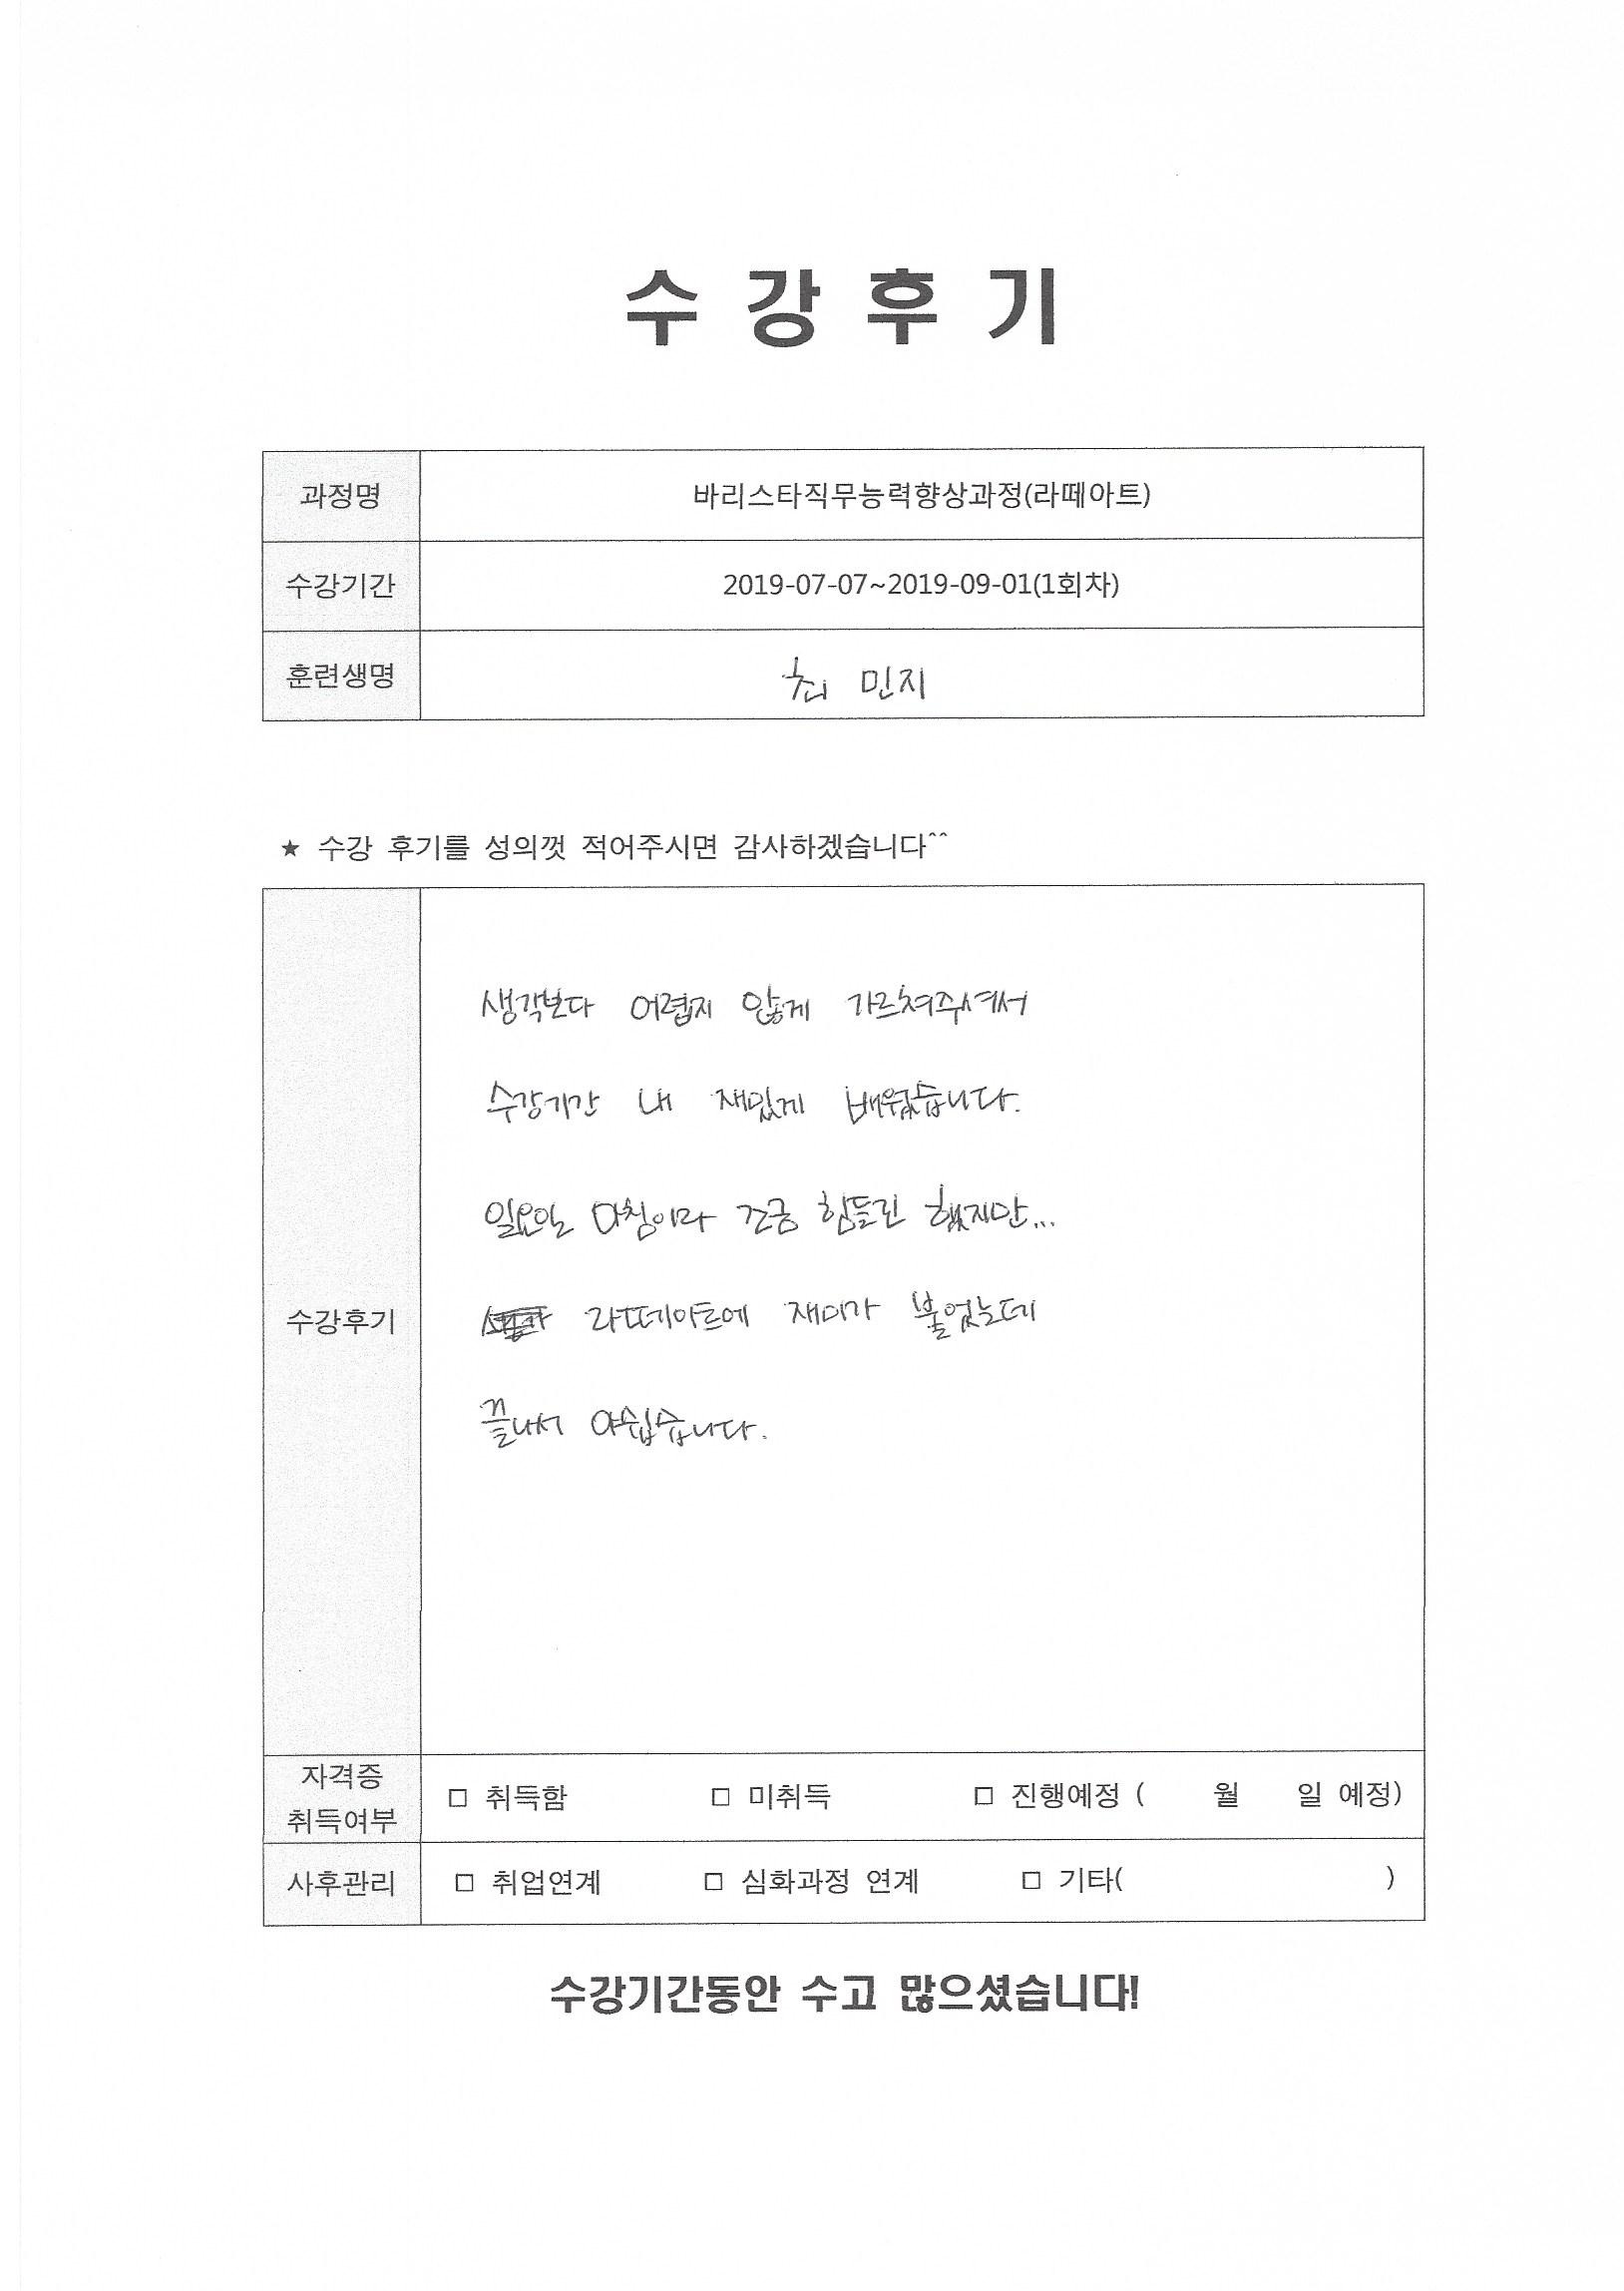 수 강 후 기
과정명 바리스타직무능력향상과정(라떼아트)
수강기간 2019-07-07~2019-09-01(1회차)
훈련생명 최 민지
★ 수강 후기를 성의껏 적어주시면 감사하겠습니다^^
생각보다 어렵지 않게 가르쳐주셔서
수강기간 내 재밌게 배웠습니다.
일요일 아침이라 조금 힘들긴 했지만...
수강후기
라떼아트에 재미가 붙었는데
끝나서 아쉽습니다.
자격증
취득여부
□ 취득함 □ 미취득 □ 진행예정 ( 월 일 예정)
사후관리 □ 취업연계 □ 심화과정 연계 □ 기타( )
수강기간동안 수고 많으셨습니다!